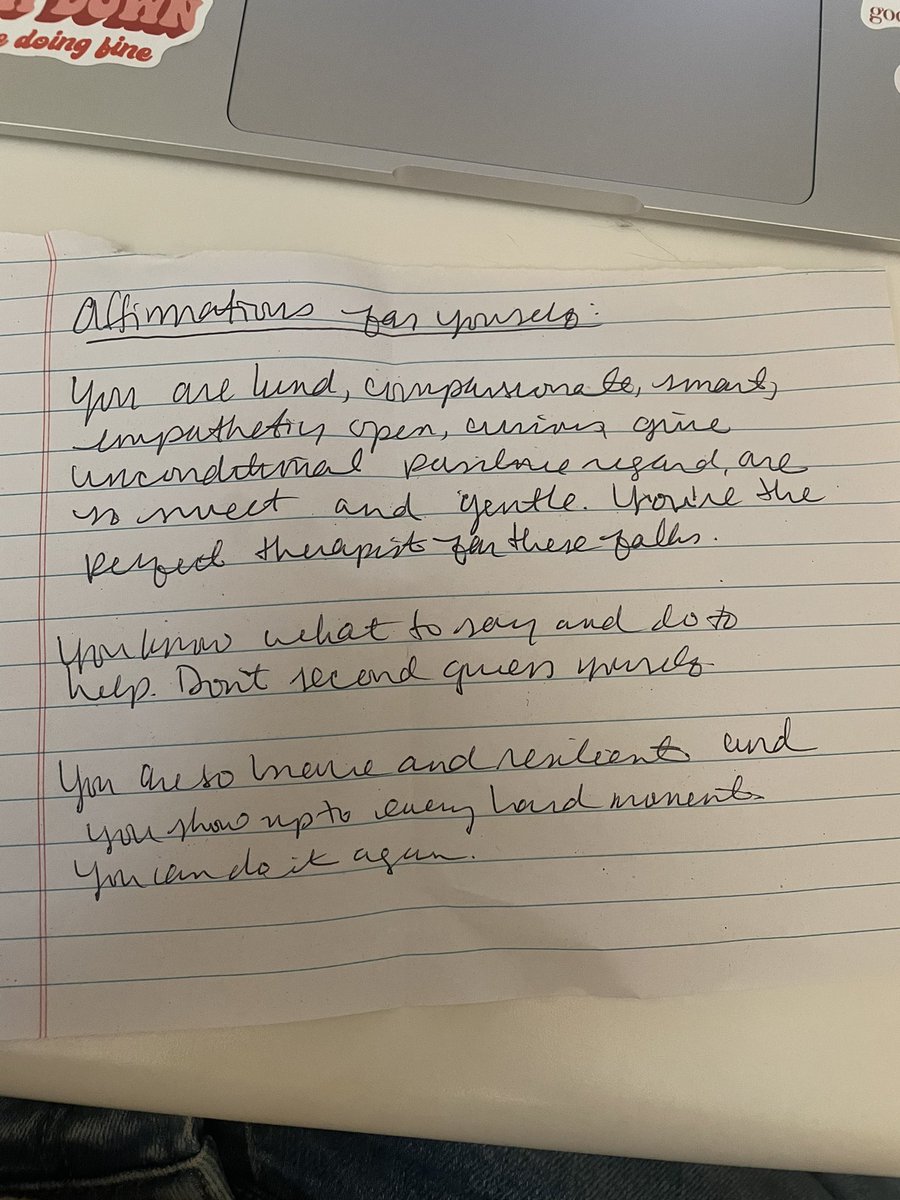 DOWN
doing fine
goo
Affirmations for yourself:
You are kind, compassionate, smart,
empathetic, open, curious, give
unconditional positive regard, are
so sweet and gentle. You're the
perfect therapist for these folks.
You know what to say and do to
help. Don't second guess yourself
You are so brave and resilient and
you show up to every hard moment
You can do it again.